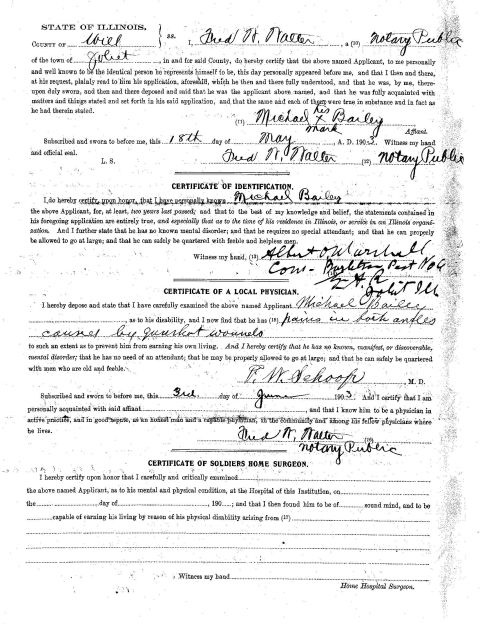 STATE OF ILLINOIS,
COUNTY OF Will } ss. I, Fred W. Walter, a (10) Notary Public
of the town of Joliet, in and for said County, do hereby certify that the above named Applicant, to me personally
and well known to be the identical person he represents himself to be, this day personally appeared before me, and that I then and there,
at his request, plainly read to him his application, aforesaid, which he then and there fully understood, and that he was, by me, there-
upon duly sworn, and then and there deposed and said that he was the applicant above named, and that he was fully acquainted with
matters and things stated and set forth in his said application, and that the same and each of them were true in substance and in fact as
he had therein stated.
his
(11) Michael X Bailey
mark Affiant.
Subscribed and sworn to before me, this 18th day of May, A. D. 190 Witness my hand
and official seal.
L. S. Fred W. Walter (12) Notary Public
CERTIFICATE OF IDENTIFICATION.
I do hereby certify, upon honor, that I have personally known Michael Bailey
the above Applicant, for, at least, two years last passed; and that to the best of my knowledge and belief, the statements contained in
his foregoing application are entirely true, and especially that as to the time of his residence in Illinois, or service in an Illinois organi-
zation. And I further state that he has no known mental disorder; and that he requires no special attendant; and that he can properly
be allowed to go at large; and that he can be safely quartered with feeble and helpless men.
Witness my hand, (13) Albert O Marshall
Com- Post No 6
Joliet Ill
CERTIFICATE OF A LOCAL PHYSICIAN.
I hereby depose and state that I have carefully examined the above named Applicant Michael Bailey
as to his disability, and I now find that he has (15) pains in both ankles
caused by gunshot wounds
to such an extent as to prevent him from earning his own living. And I hereby certify that he has no known, manifest, or discoverable,
mental disorder; that he has no need of an attendant; that he may be properly allowed to go at large; and that he can safely be quartered
with men who are old and feeble.
T. W. Schoop, M. D.
Subscribed and sworn to before me, this 3rd day of June 190 And I certify that I am
personally acquainted with said affiant, and that I know him to be a physician in
active practice, and in good repute, as an honest man and a capable physician, in the community and among his fellow physicians where
he lives.
Fred W. Walter
Notary Public
CERTIFICATE OF SOLDIERS HOME SURGEON.
I hereby certify upon honor that I carefully and critically examined
the above named Applicant, as to his mental and physical condition, at the Hospital of the Institution, on
the day of, 190; and that I then found him to be of sound mind, and to be
capable of earning his living by reason of his physical disability arising from (17)
Witness my hand
Home Hospital Surgeon.